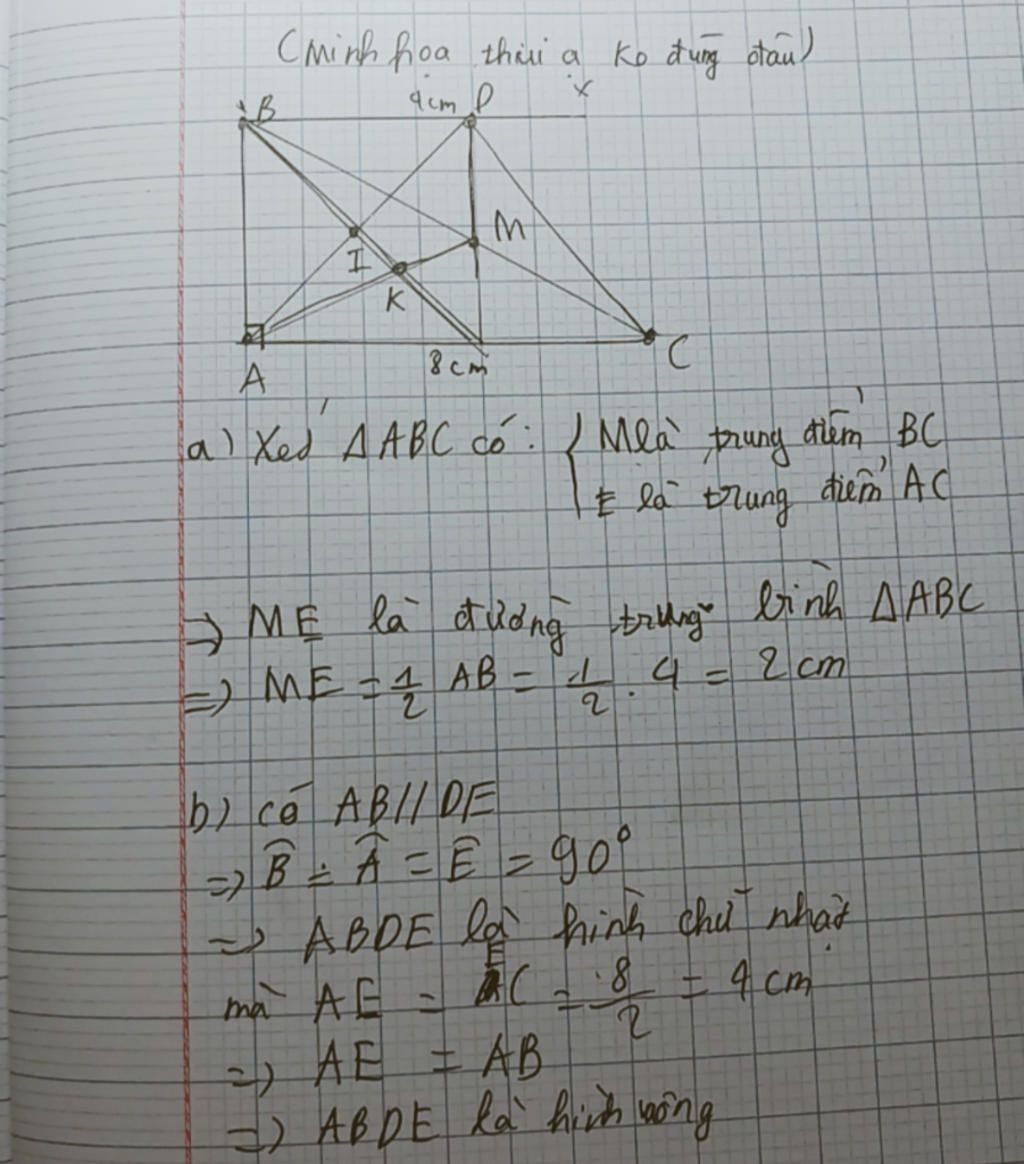 (Minh họa thui ạ ko đúng đâu)
B 4cm D x
M
I
K
8cm
A C
a) Xét ΔABC có: { M là trung điểm BC
E là trung điểm AC
=> ME là đường trung bình ΔABC
=> ME = 1/2 AB = 1/2 . 4 = 2 cm
b) có AB // DE
=> B̂ = Â = Ê = 90°
=> ABDE là hình chữ nhật
mà AE = EC = 8/2 = 4 cm
=> AE = AB
=> ABDE là hình vuông